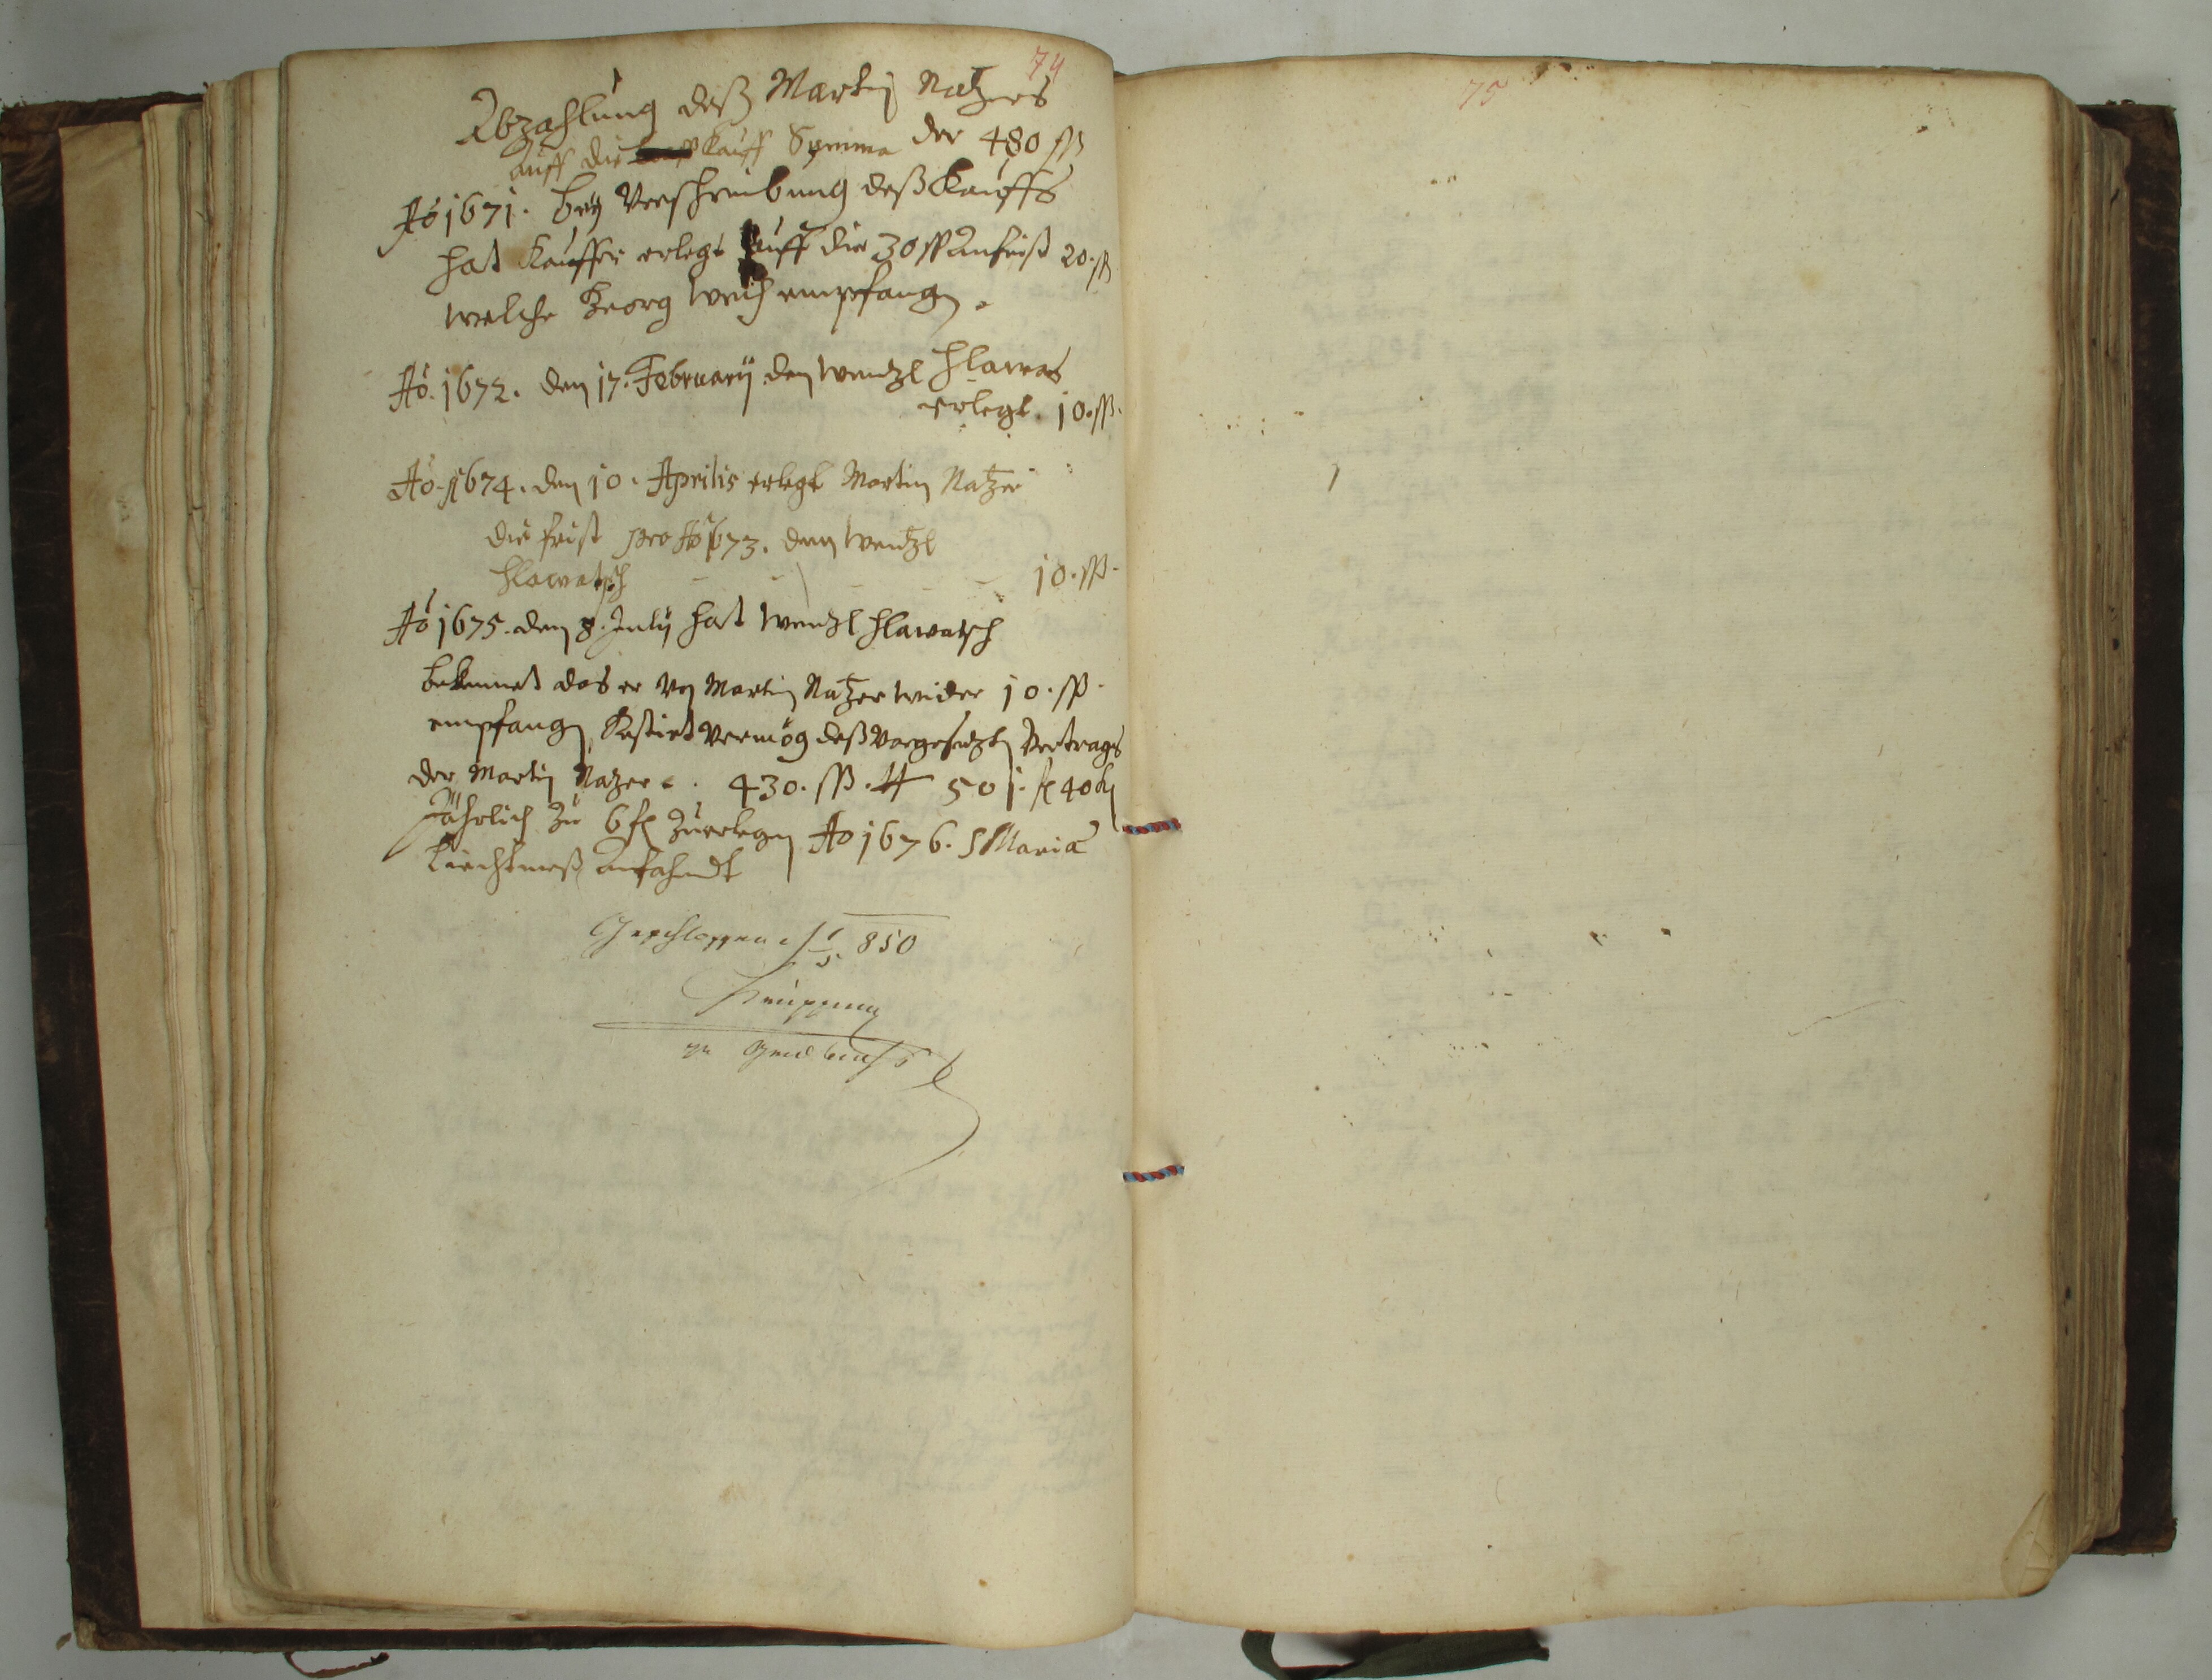 74
Abzahlung deß Martin Natzers
auff die Kauff Summa der 480 ß
Aō 1671. bey Verschreibung deß Kauffs
hat Kauffer erlegt auff die 30 ß Anfrist 20. ß
welche Georg empfangen.
Aō. 1672. den 17. February dem Wentzl Hlawas
erlegt. 10. ß.
Aō. 1674. den 10. Aprilis erlegt Martin Natzer
die frist pro Aō 1673. dem Wentzl
Hlawatsch 10. ß.
Aō 1675. den 8. July hat Wentzl Hlawatsch
bekennet das er von Martin Natzer wider 10. ß.
empfangen, Restirt vermög deß vorgesetzten Vertrags
der Martin Natzer. 430. ß. 501. fl 40 kr
Jährlich zu 6 fl zuerlegen Ao 1676. S Maria
Liechtmeß anfahendt
Geschlossen 1/5 850
75